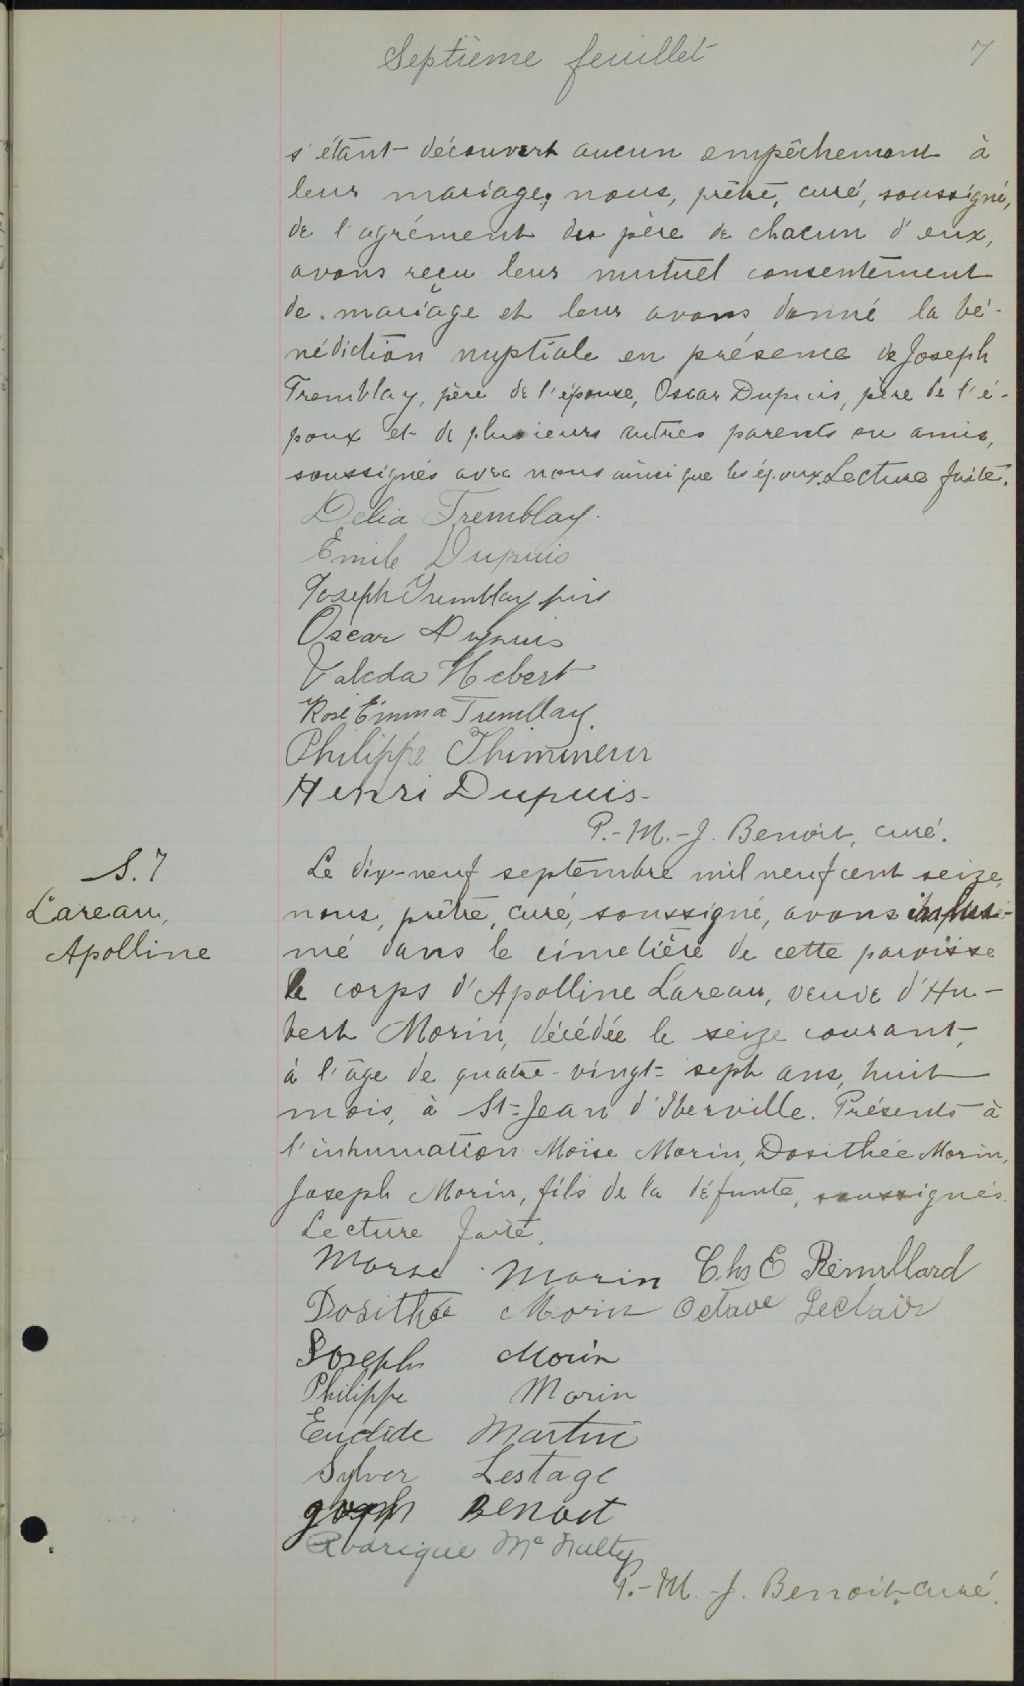 Septième feuillet 7
s'étant découvert aucun empêchement à
leur mariage, nous, prêtre, curé, soussigné,
de l'agrément du père de chacun d'eux,
avons reçu leur mutuel consentement
de mariage et leur avons donné la bé-
nédiction nuptiale en présence de Joseph
Tremblay, père de l'épouse, Oscar Dupuis, père de l'é-
poux et de plusieurs autres parents ou amis,
soussignés avec nous ainsi que les époux. Lecture faite.
Delia Tremblay.
Emile Dupuis
Joseph Tremblay père
Oscar Dupuis
Valeda Hebert
Rose Emma Tremblay.
Philippe Thimineur
Henri Dupuis-
P.-M.-J. Benoit, curé.
S. 7
Lareau,
Apolline
Le dix-neuf septembre mil neuf cent seize,
nous, prêtre, curé, soussigné, avons inhu-
mé dans le cimetière de cette paroisse
le corps d'Apolline Lareau, veuve d'Hu-
bert Morin, décédée le seize courant,
à l'âge de quatre-vingt-sept ans, huit
mois, à St-Jean d'Iberville. Présents à
l'inhumation Moïse Morin, Dosithée Morin,
Joseph Morin, fils de la défunte, soussignés.
Lecture faite.
Morse Morin Chs E Rémillard
Dosithée Morin Octave Leclair
Joseph Morin
Philippe Morin
Euclide Martin
Sylver Lestage
Joseph Benoit
Rodrigue Mc Nulty
P.-M.-J. Benoit, curé.